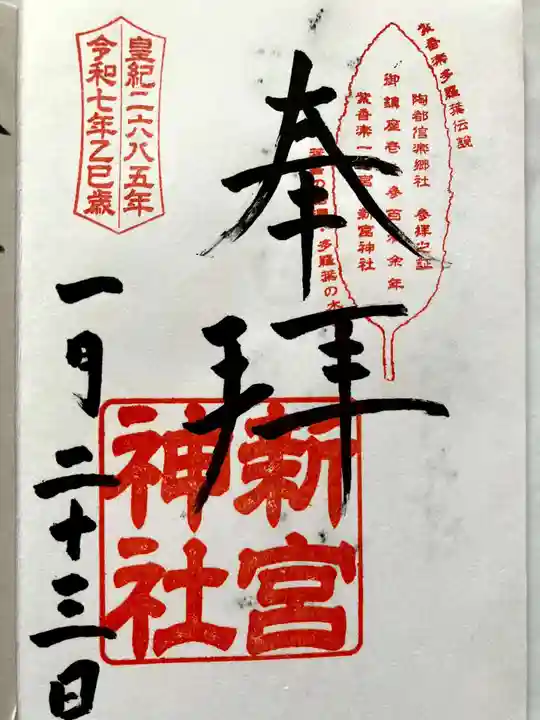 紫香楽多羅葉伝説
陶都信楽郷社 参拝之証
御鎮座壱千参百有余年
紫香楽一之宮 新宮神社
多羅葉の木
奉拝
皇紀二六八五年
令和七年乙巳歳
新宮
神社
一月二十三日